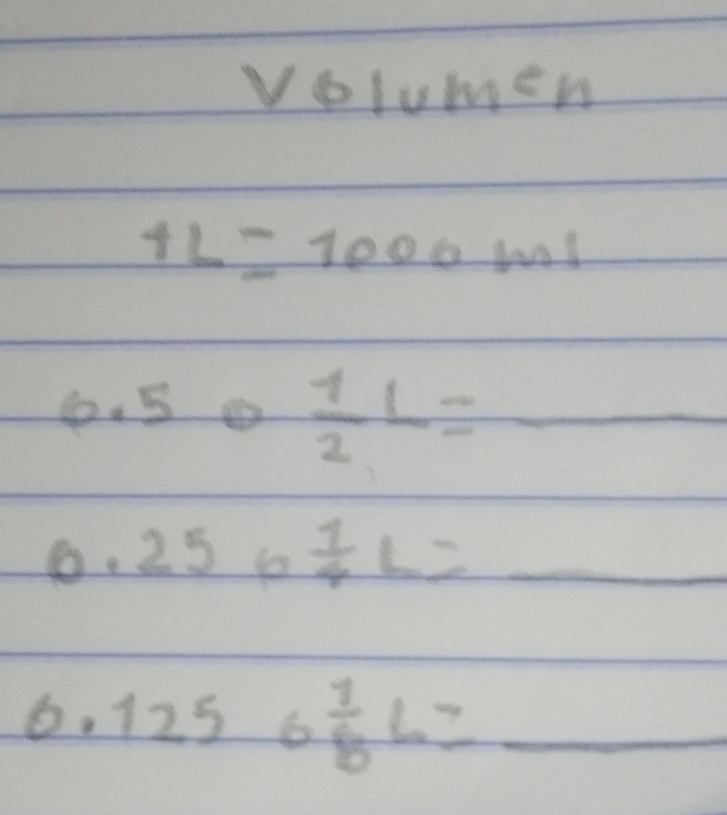 Volumen
1L = 1000 ml
0.5 o 1/2 L = ______
0.25 o 1/4 L = ______
0.125 o 1/8 L = ______